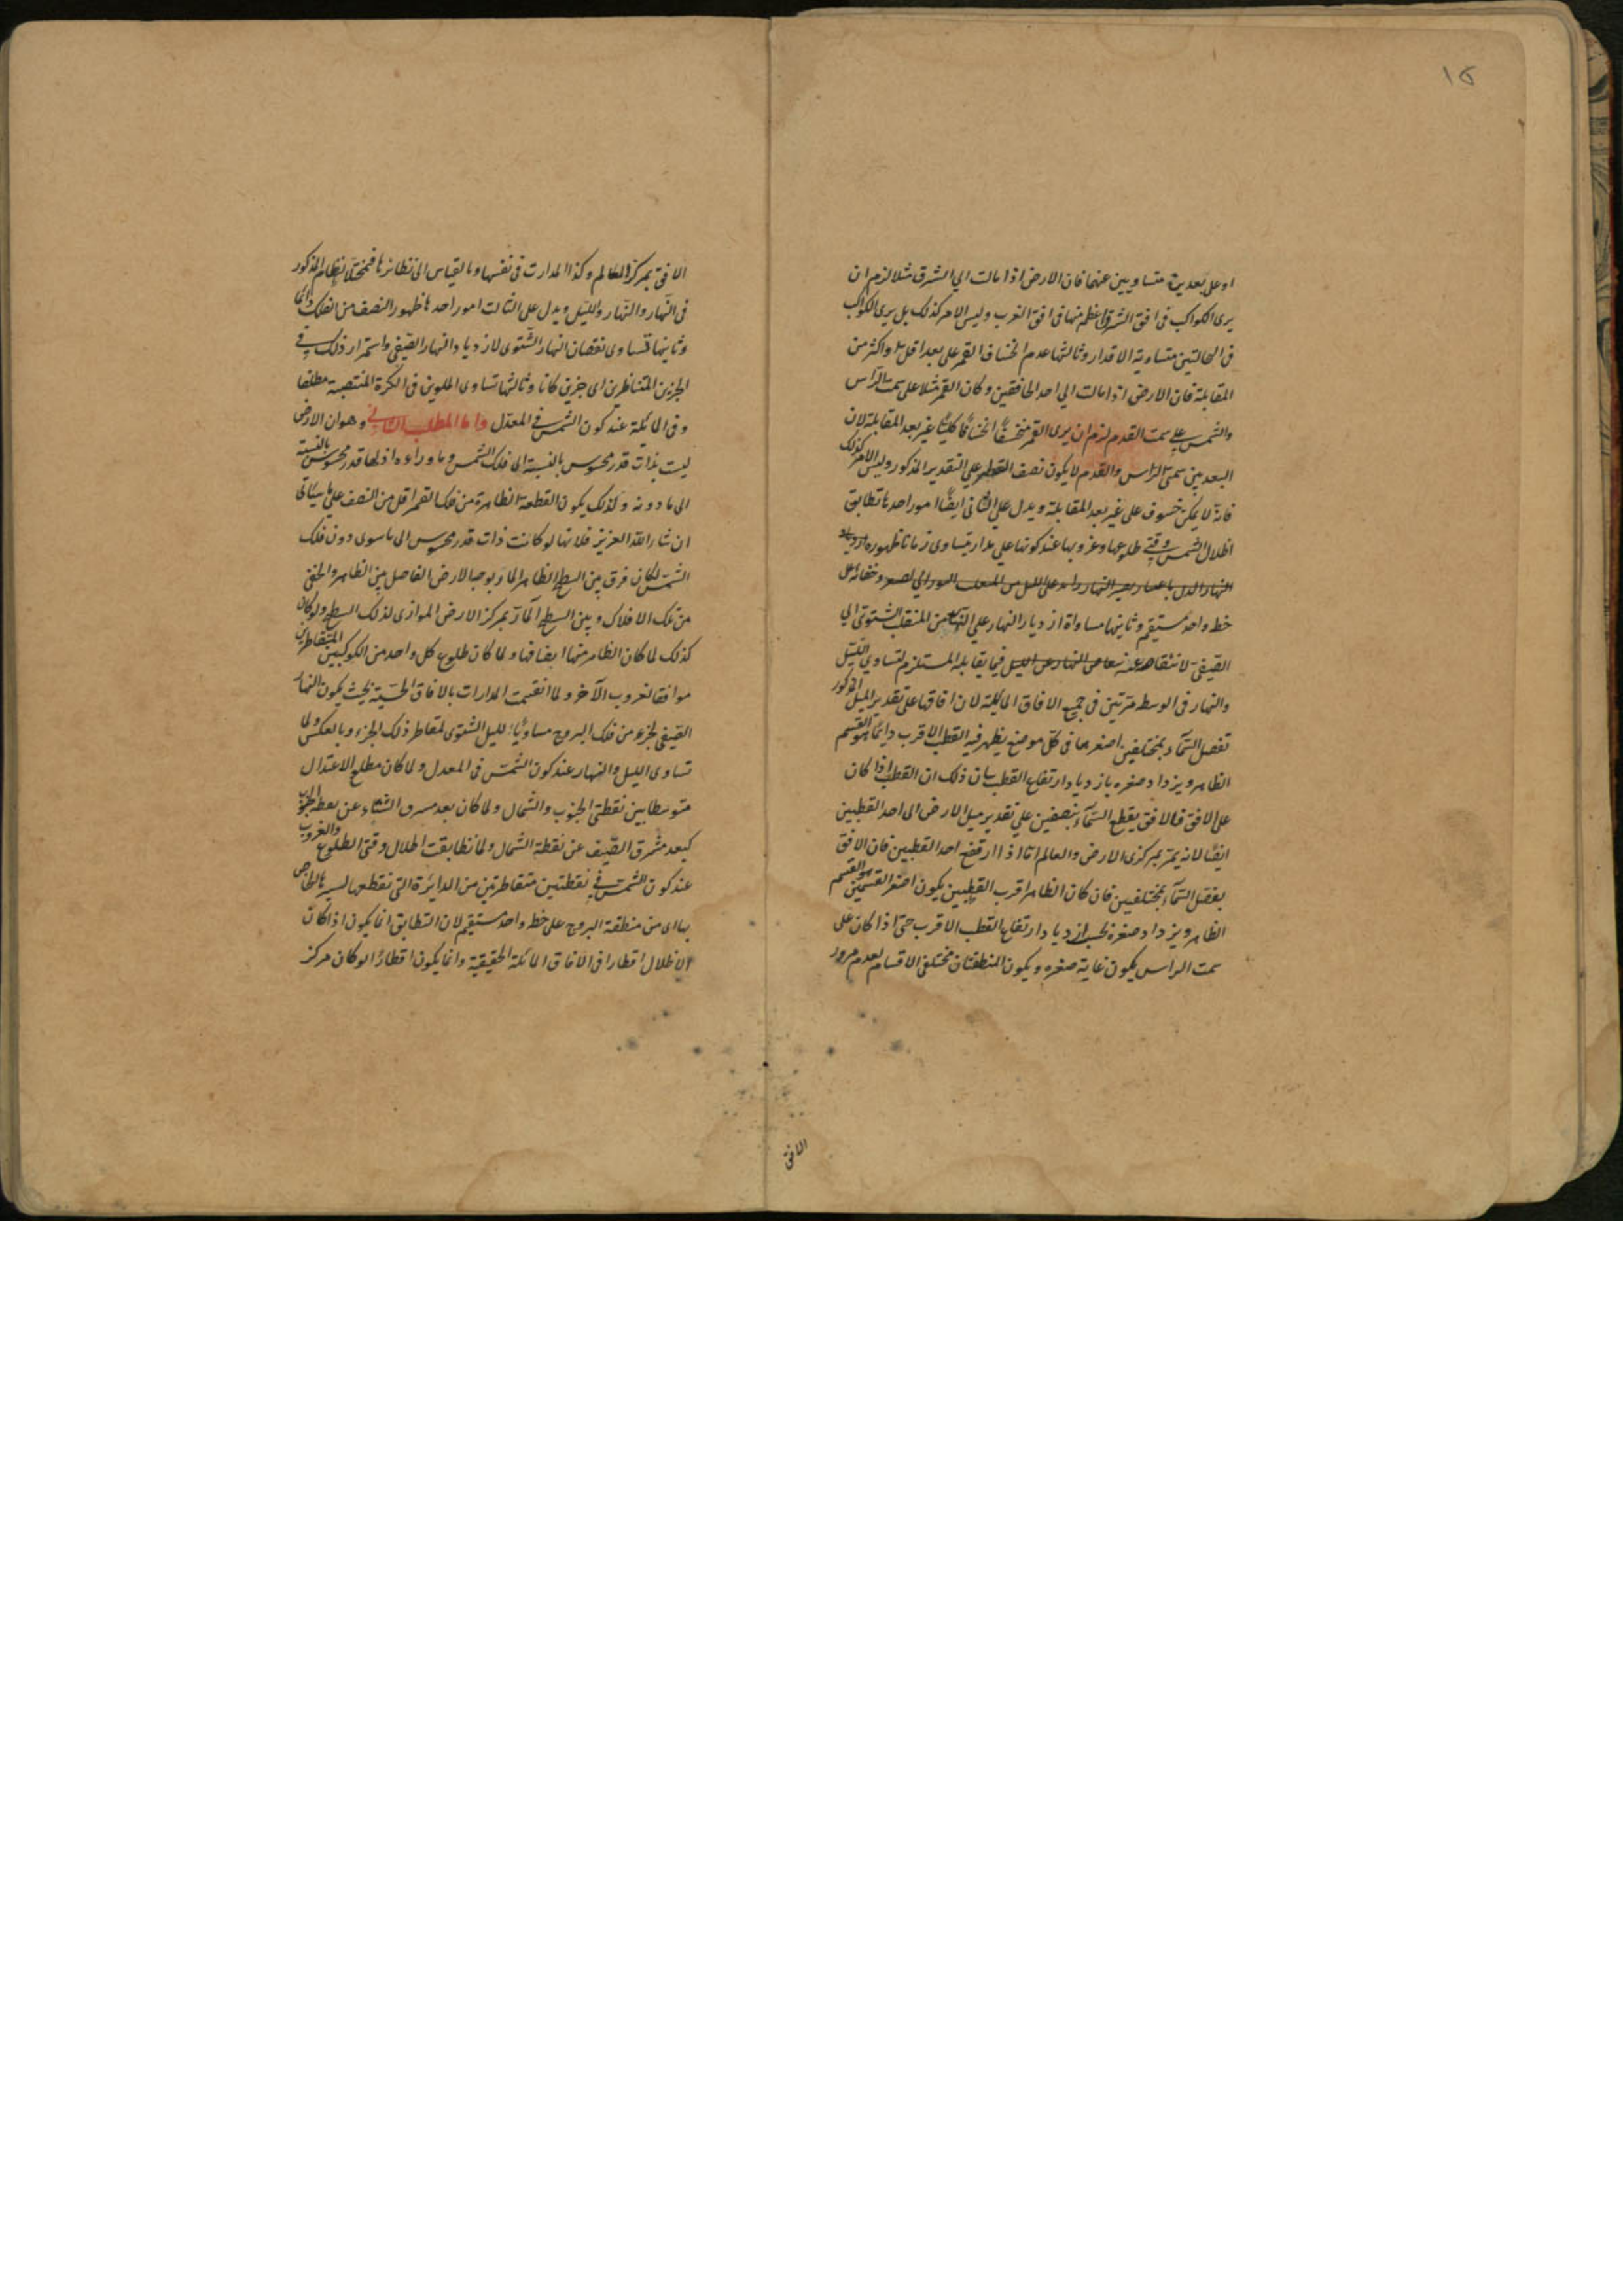 ١٥
او على بعد يرى متساويين عنهما فان الارض اذا مالت الي الشرق مثلا لزم ان
يرى الكواكب في افق الشرق اعظم منها في افق الغرب وليس الامر كذلك بل يرى الكواكب
في الحالتين متساوية الاقدار وثالثها عدم انخساف القمر على بعد اقل او اكثر من
المقابلة فان الارض اذا مالت الي احد الخافقين وكان القمر مثلا على سمت الرّاس
والشمس علي سمت القدم لزم ان يرى القمر منخسفًا انخسافًا كليًا غير بعد المقابلة لان
البعد بين سمتي الرّاس والقدم لا يكون نصف القطر علي التقدير المذكور وليس الامر كذلك
فانه لا يمكن خسوف على غير بعد المقابلة ويدل علي الثاني ايضًا امور احدها تطابق
اظلال الشمس وقتي طلوعها وغروبها عند كونها علي مدار يتساوى زمانا ظهوره
وخفائه على
خط واحد مستقيم وثانيها مساواة ازدياد النهار علي النهار من المنقلب الشتوي الي
الصيفي لانتقاصه عنه فيما يقابله المستلزم لتساوي الليل
والنهار في الوسط مرّتين في جميع الافاق المائلة لان افاقها على تقدير الميل المذكور
تفصل السّماء بمختلفين اصغرهما في كل موضع يظهر فيه القطب الاقرب دايمًا هو القسم
الظاهر ويزداد صغره بازدياد ارتفاع القطب بيان ذلك ان القطب اذا كان
على الافق فالافق يقطع السّماء بنصفين علي تقدير ميل الارض الى احد القطبين
ايضًا لانه يمرّ بمركزي الارض والعالم امّا اذا ارتفع احد القطبين فان الافق
يفصل السّماء بمختلفين فان كان الظاهر اقرب القطبين يكون اصغر القسمين هو القسم
الظاهر ويزداد صغره بحسب ازدياد ارتفاع القطب الاقرب حتى اذا كان على
سمت الراس يكون غاية صغره ويكون المنطقتان مختلفي الاقسام لعدم مرور
الافق
الافق بمركز العالم وكذا المدارات في نفسها وبالقياس الى نظائرها فيختل النظام المذكور
في النّهار والنّهار والليل ويدل على الثالث امور احدها ظهور النصف من الفلك دائما
وثانيها تساوى نقصان النهار الشتوى لازدياد النهار الصيفي واستمرار ذلك في
الجزئين المتناظرين اى جزئين كانا وثالثها تساوى الملوين في الكرة المنتصبة مطلقا
وفي المائلة عند كون الشمس في المعدّل واما المطلب الثاني وهو ان الارض
ليست بذات قدر محسوس بالنسبة الى فلك الشمس وما وراءه اذ لها قدر محسوس بالنسبة
الى ما دونه ولذلك يكون القطعة الظاهرة من فلك القمر اقل من النصف علي ما سيأتي
ان شاء الله العزيز فلانها لو كانت ذات قدر محسوس الى ما سوى دون فلك
الشمس لكان فرق بين السطح الظاهر المار بوجه الارض الفاصل بين الظاهر والخفي
من تلك الافلاك وبين السطح المارّ بمركز الارض الموازى لذلك السطح ولو كان
كذلك لما كان الظاهر منها انصافها ولما كان طلوع كل واحد من الكوكبين المتقاطرين
موافقا لغروب الآخر ولما انقسمت المدارات بالافاق الحسّيّة بحيث يكون النهار
الصيفي لجزء من فلك البروج مساويًا لليل الشتوى لمقاطر ذلك الجزء وبالعكس ولما
تساوى الليل والنهار عند كون الشمس في المعدل ولما كان مطلع الاعتدال
متوسطا بين نقطتي الجنوب والشمال ولما كان بعد مشرق الشتاء عن نقطة الجنوب
كبعد مشرق الصّيف عن نقطة الشمال ولما تطابقت اظلال وقتي الطلوع والغروب
عند كون الشمس في نقطتين متقاطرتين من الدائرة التي تقطعها بسيرها الخاص
بها اى من منطقة البروج على خط واحد مستقيم لان التطابق انما يكون اذا كان
الاظلال اقطارا في الافاق المائلة الحقيقية وانما يكون اقطارًا لو كان مركز